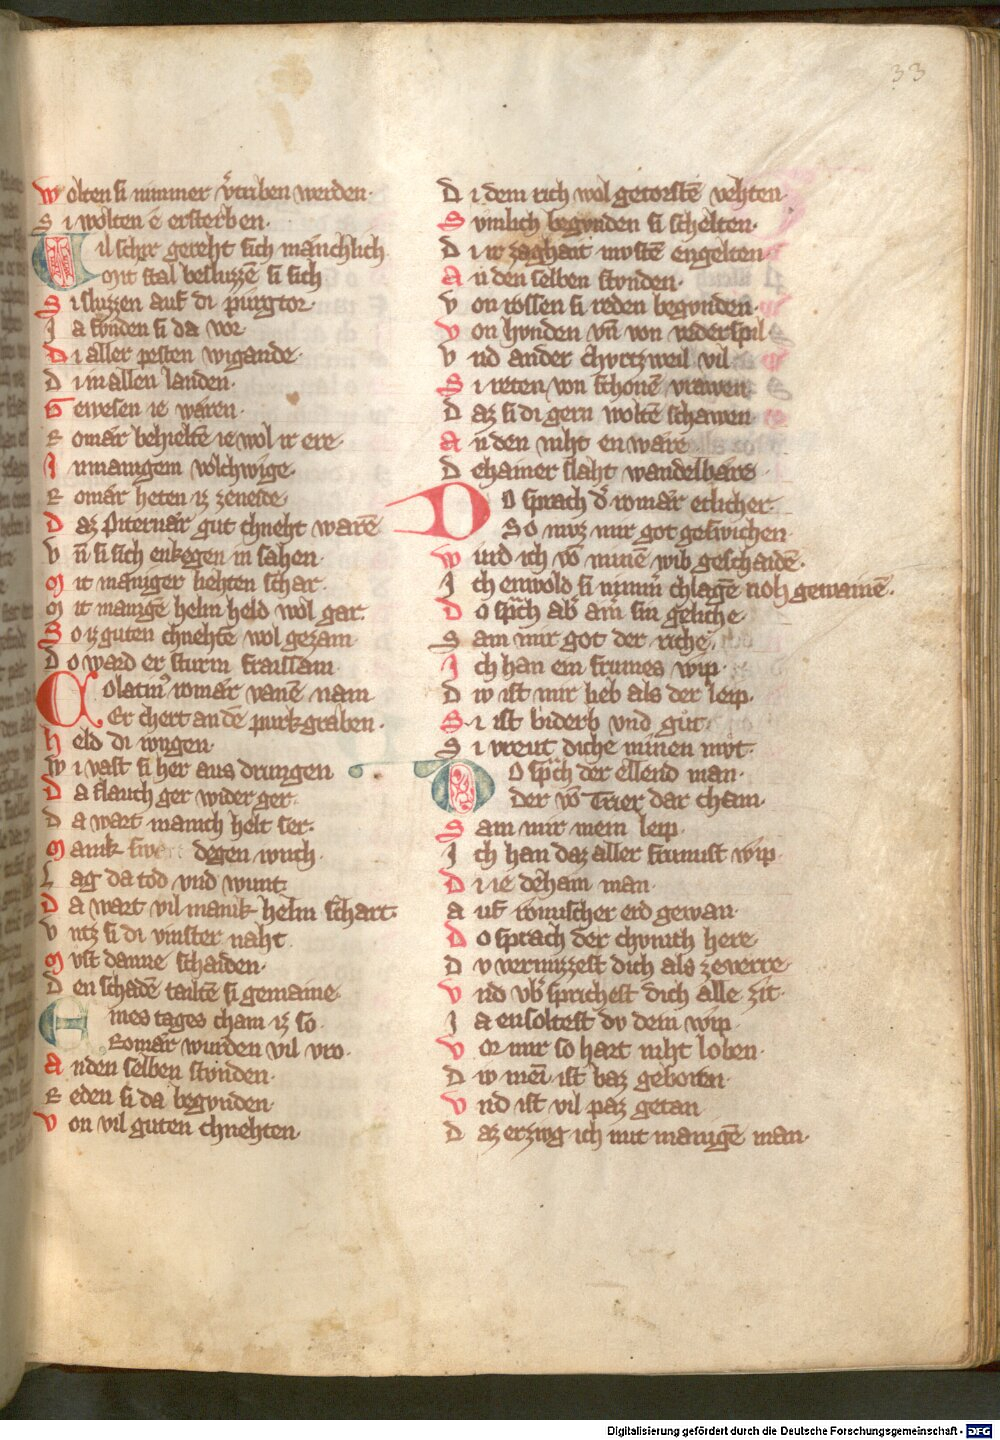 33
Wolten si nimmer v̾triben werden·
Si wolten e ersterben·
Vil schir gereht sich mänchlich
Mit stal besluzzē si sich
Si sluzzen auf di purgtor·
Ja stvnden si da vor
Di aller pesten wigande·
Di in allen landen·
Gewesen ie waren·
Romär behieltē ie wol ir ere·
In manigem volchwige·
Romär heten iz zeneste·
Daz Piternär gut chneht warē
Vn̄ si sich enkegen in sahen·
Mit maniger behten schar·
Mit manigē helm held wol gar·
So iz guten chnehtē wol gezam·
Do ward er sturm fraissam·
Colatin⁹ romär vanē nam
Er chert an dē purkgraben·
Held di ivngen·
Wi vast si her aus drungen
Da slauch ger wider ger·
Da wart manich helt ser·
Manik degen iunch·
Lag da tod vnd wunt
Da wart vil manik helm schart·
Vntz si di vinster naht
Mvst danne schaiden·
Den schadē tailtē si gemaine·
Eines tages cham iz so
Romär wurden vil vro·
An den selben stvnden·
Reden si da begvnden·
Von vil guten chnehten·
Di dem rich wol getorstē vehten·
Svmlich begvnden si schelten·
Di ir zaghait mvstē engelten·
An den selben stvnden·
Von rossen si reden begvnden·
Von hvnden vn̄ von vederspil
Vnd ander chvrtzweil vil·
Si reten von schonē vrawen
Daz si di gern woltē schawen·
An den niht en ware
Dehainer slaht wandelbäre·
Do sprach d̾ romär etlicher·
So mvz mir got geswichen·
Wird ich vō minē wib geschaidē·
Ich enwold si nimm̄ chlagē noh gewainē·
Do sp̄ch ab̾ ain sin geliche·
Sam mir got der riche·
Ich han ein frumes wip·
Dw ist mir lieb als der leip·
Si ist biderb vnd gůt·
Si vrevt diche minen mvt·
Do sp̄ch der ellend man·
der vō Trier dar cham·
Sam mir mein leip·
Ich han daz aller frumist wip·
Di ie deham man·
Auf romischer erd gewan·
Do sprach der chvnich here·
Dv vermizzest dich als zeverre·
Vnd vb̾ sprichest dich alle zit·
Ja ensoltest dv dem wip·
Vor mir so hart niht loben·
Dw mei ist baz geborten·
Vnd ist vil paz getan
Daz erzivg ich mit manigē man·
Digitalisierung gefördert durch die Deutsche Forschungsgemeinschaft - DFG